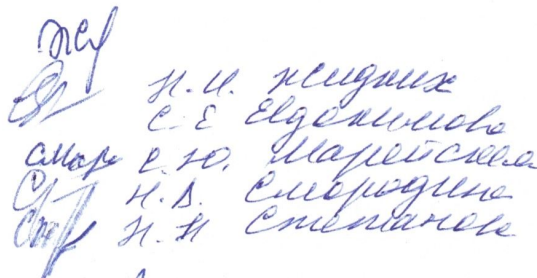 Н.И. Жидких
С.Е Евдокимова
С.Ю. Марейская
Н.В. Смородина
Н.Н Степанова